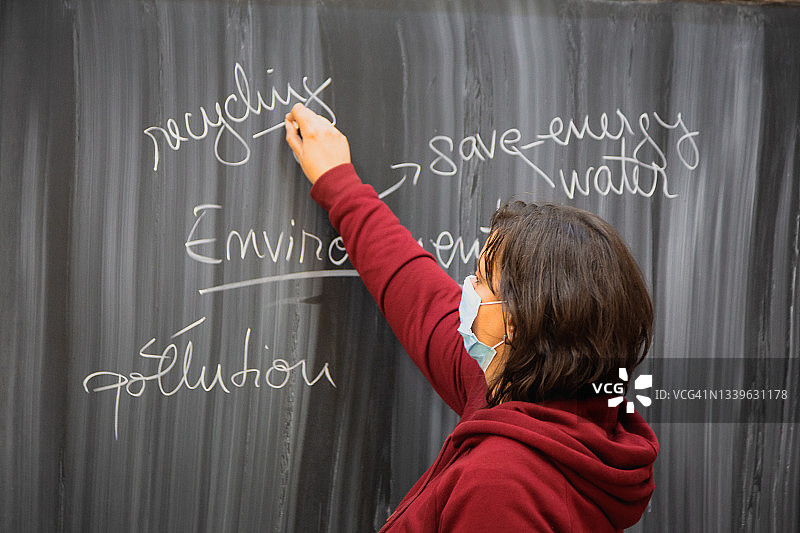 recycling
save energy
water
Environment
pollution
VCG ID: VCG41N1339631178